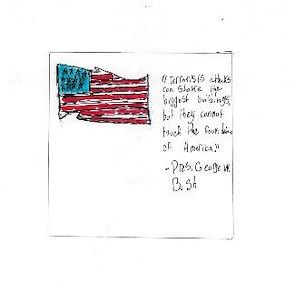 "Terrorists attacks
can shake the
biggest buildings,
but they cannot
touch the foundation
of America"
- Pres. George W.
Bush